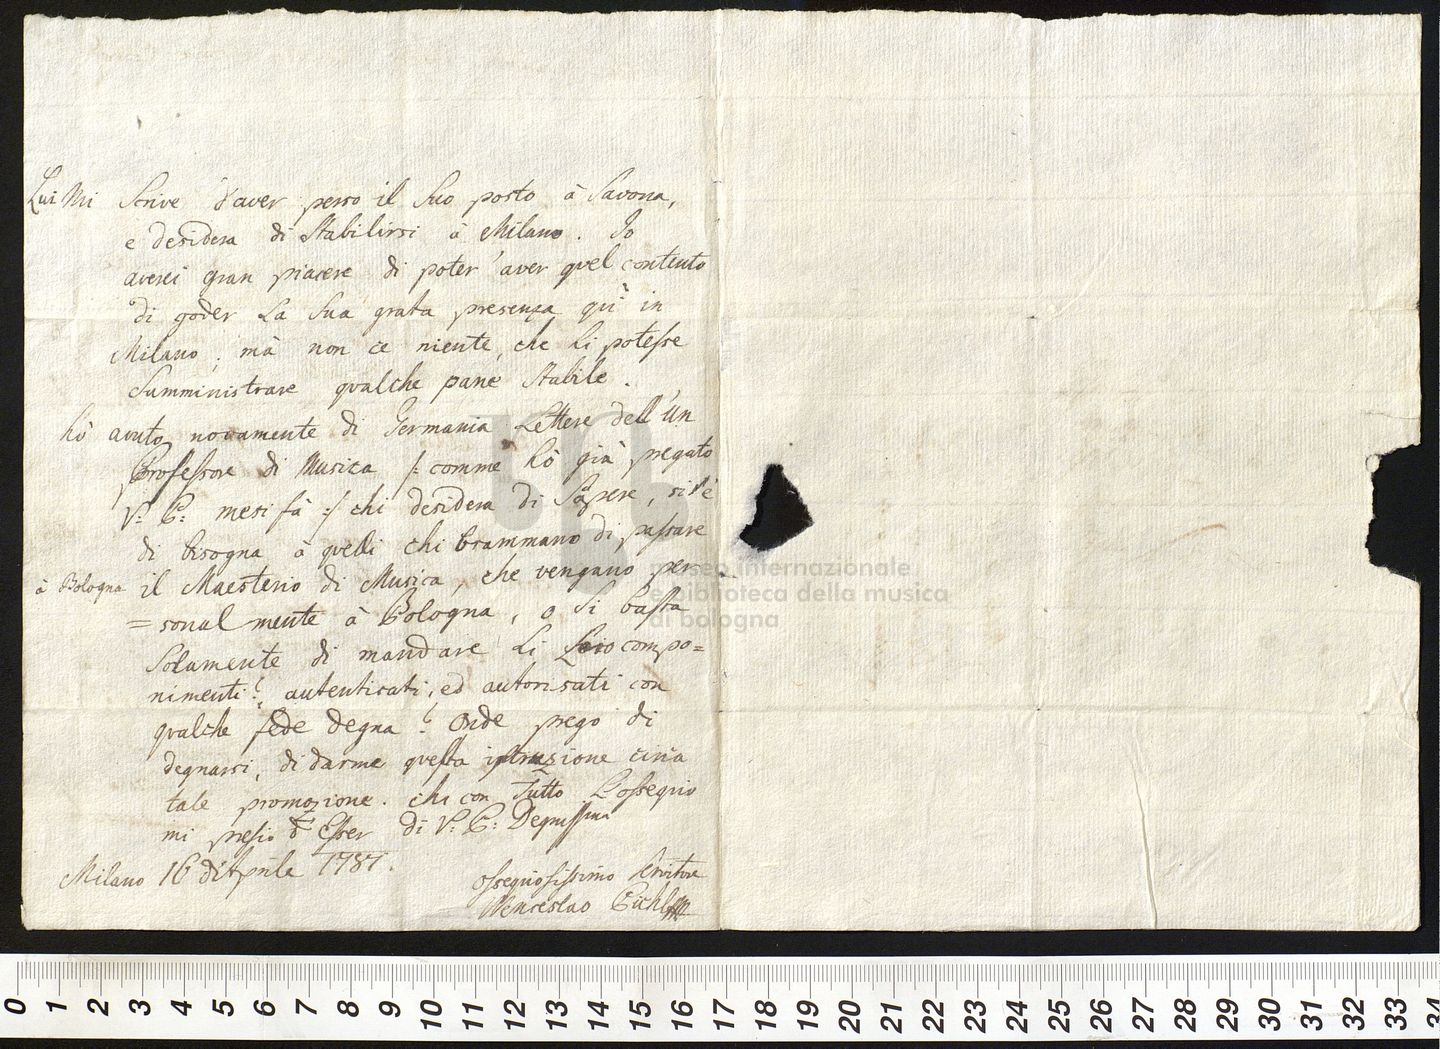 Lui Mi Scrive d'aver perso il Suo posto à Savona,
e desidera di Stabilirsi à Milano. Jo
averei gran piacere di poter' aver quel contento
di goder La Sua grata presenza quì in
Milano, mà non ce niente, che Li potesse
Sumministrare qualche pane Stabile.
hò avuto novamente di Germania Lettere dell'Un
Professore di Musica /: comme hò già pregato
V: P: mesi fà :/ chi desidera di Sapere, si è
di bisogna à quelli chi brammano di passare
à Bologna il Maesterio di Musica, che vengano per=
=sonalmente à Bologna, o Si basta
Solamente di mandare Li Loro compo=
nimenti?, autenticati, ed autorisati con
qualche fede degna? Onde prego di
degnarsi, di darme questa instruzione circa
tale promozione. che con Tutto L'ossequio
mi presio d'Esser di V: P: Degnissima
Milano 16 d'Aprile 1787.
ossequiosissimo Servitore
Wenceslao Pichl
museo internazionale
e biblioteca della musica
di bologna
0 1 2 3 4 5 6 7 8 9 10 11 12 13 14 15 16 17 18 19 20 21 22 23 24 25 26 27 28 29 30 31 32 33 34